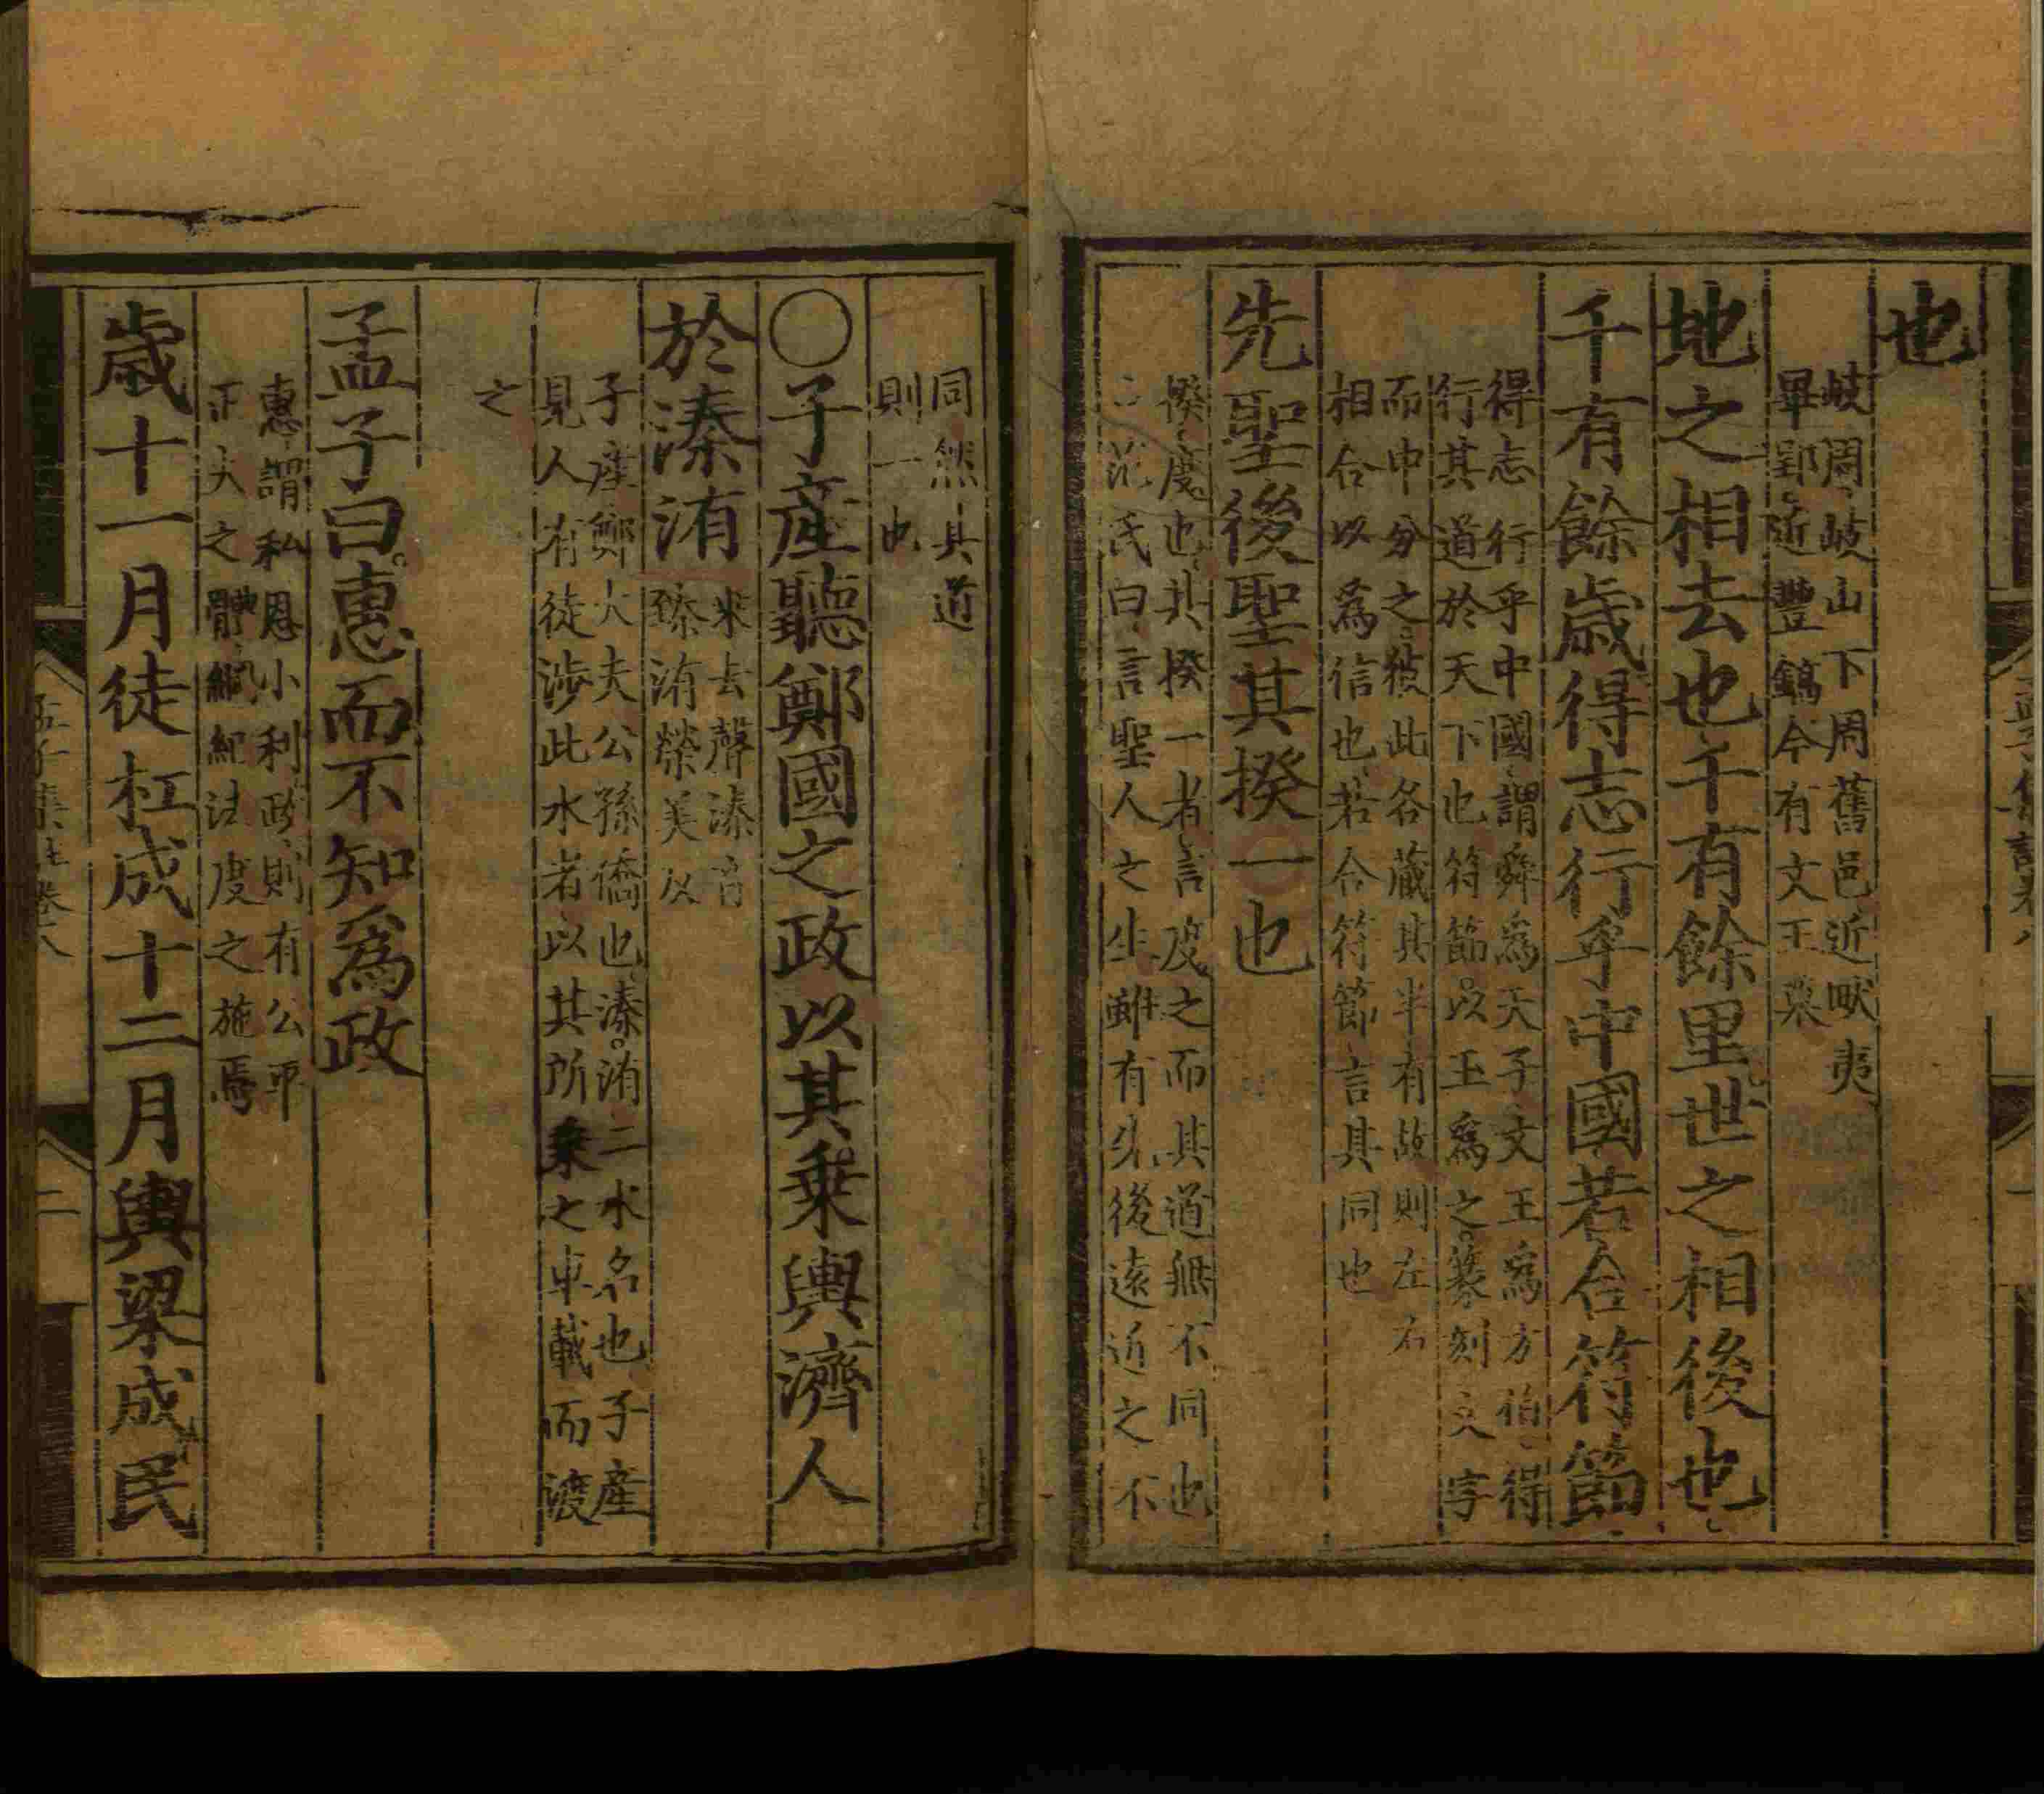 也
岐周岐山下周舊邑近畎夷
畢郢近豐鎬今有文王𦵏
地之相去也千有餘里世之相後也
千有餘歲得志行乎中國若合符節
得志行乎中國謂舜爲天子文王爲方伯得
行其道於天下也符節以玉爲之篆刻文字
而中分之彼此各藏其半有故則左右
相合以爲信也若合符節言其同也
先聖後聖其揆一也
揆度也其揆一者言度之而其道無不同也
范氏曰言聖人之生雖有先後遠近之不
同然其道
則一也
○子產聽鄭國之政以其乗輿濟人
於溱洧
乘去聲溱音
臻洧榮美以
子產鄭大夫公孫僑也溱洧二水名也子產
見人有徒涉此水者以其所乗之車載而渡
之
孟子曰惠而不知爲政
惠謂私恩小利政則有公平
正大之體綱紀法度之施焉
歲十一月徒杠成十二月輿梁成民
孟子集註卷八
二